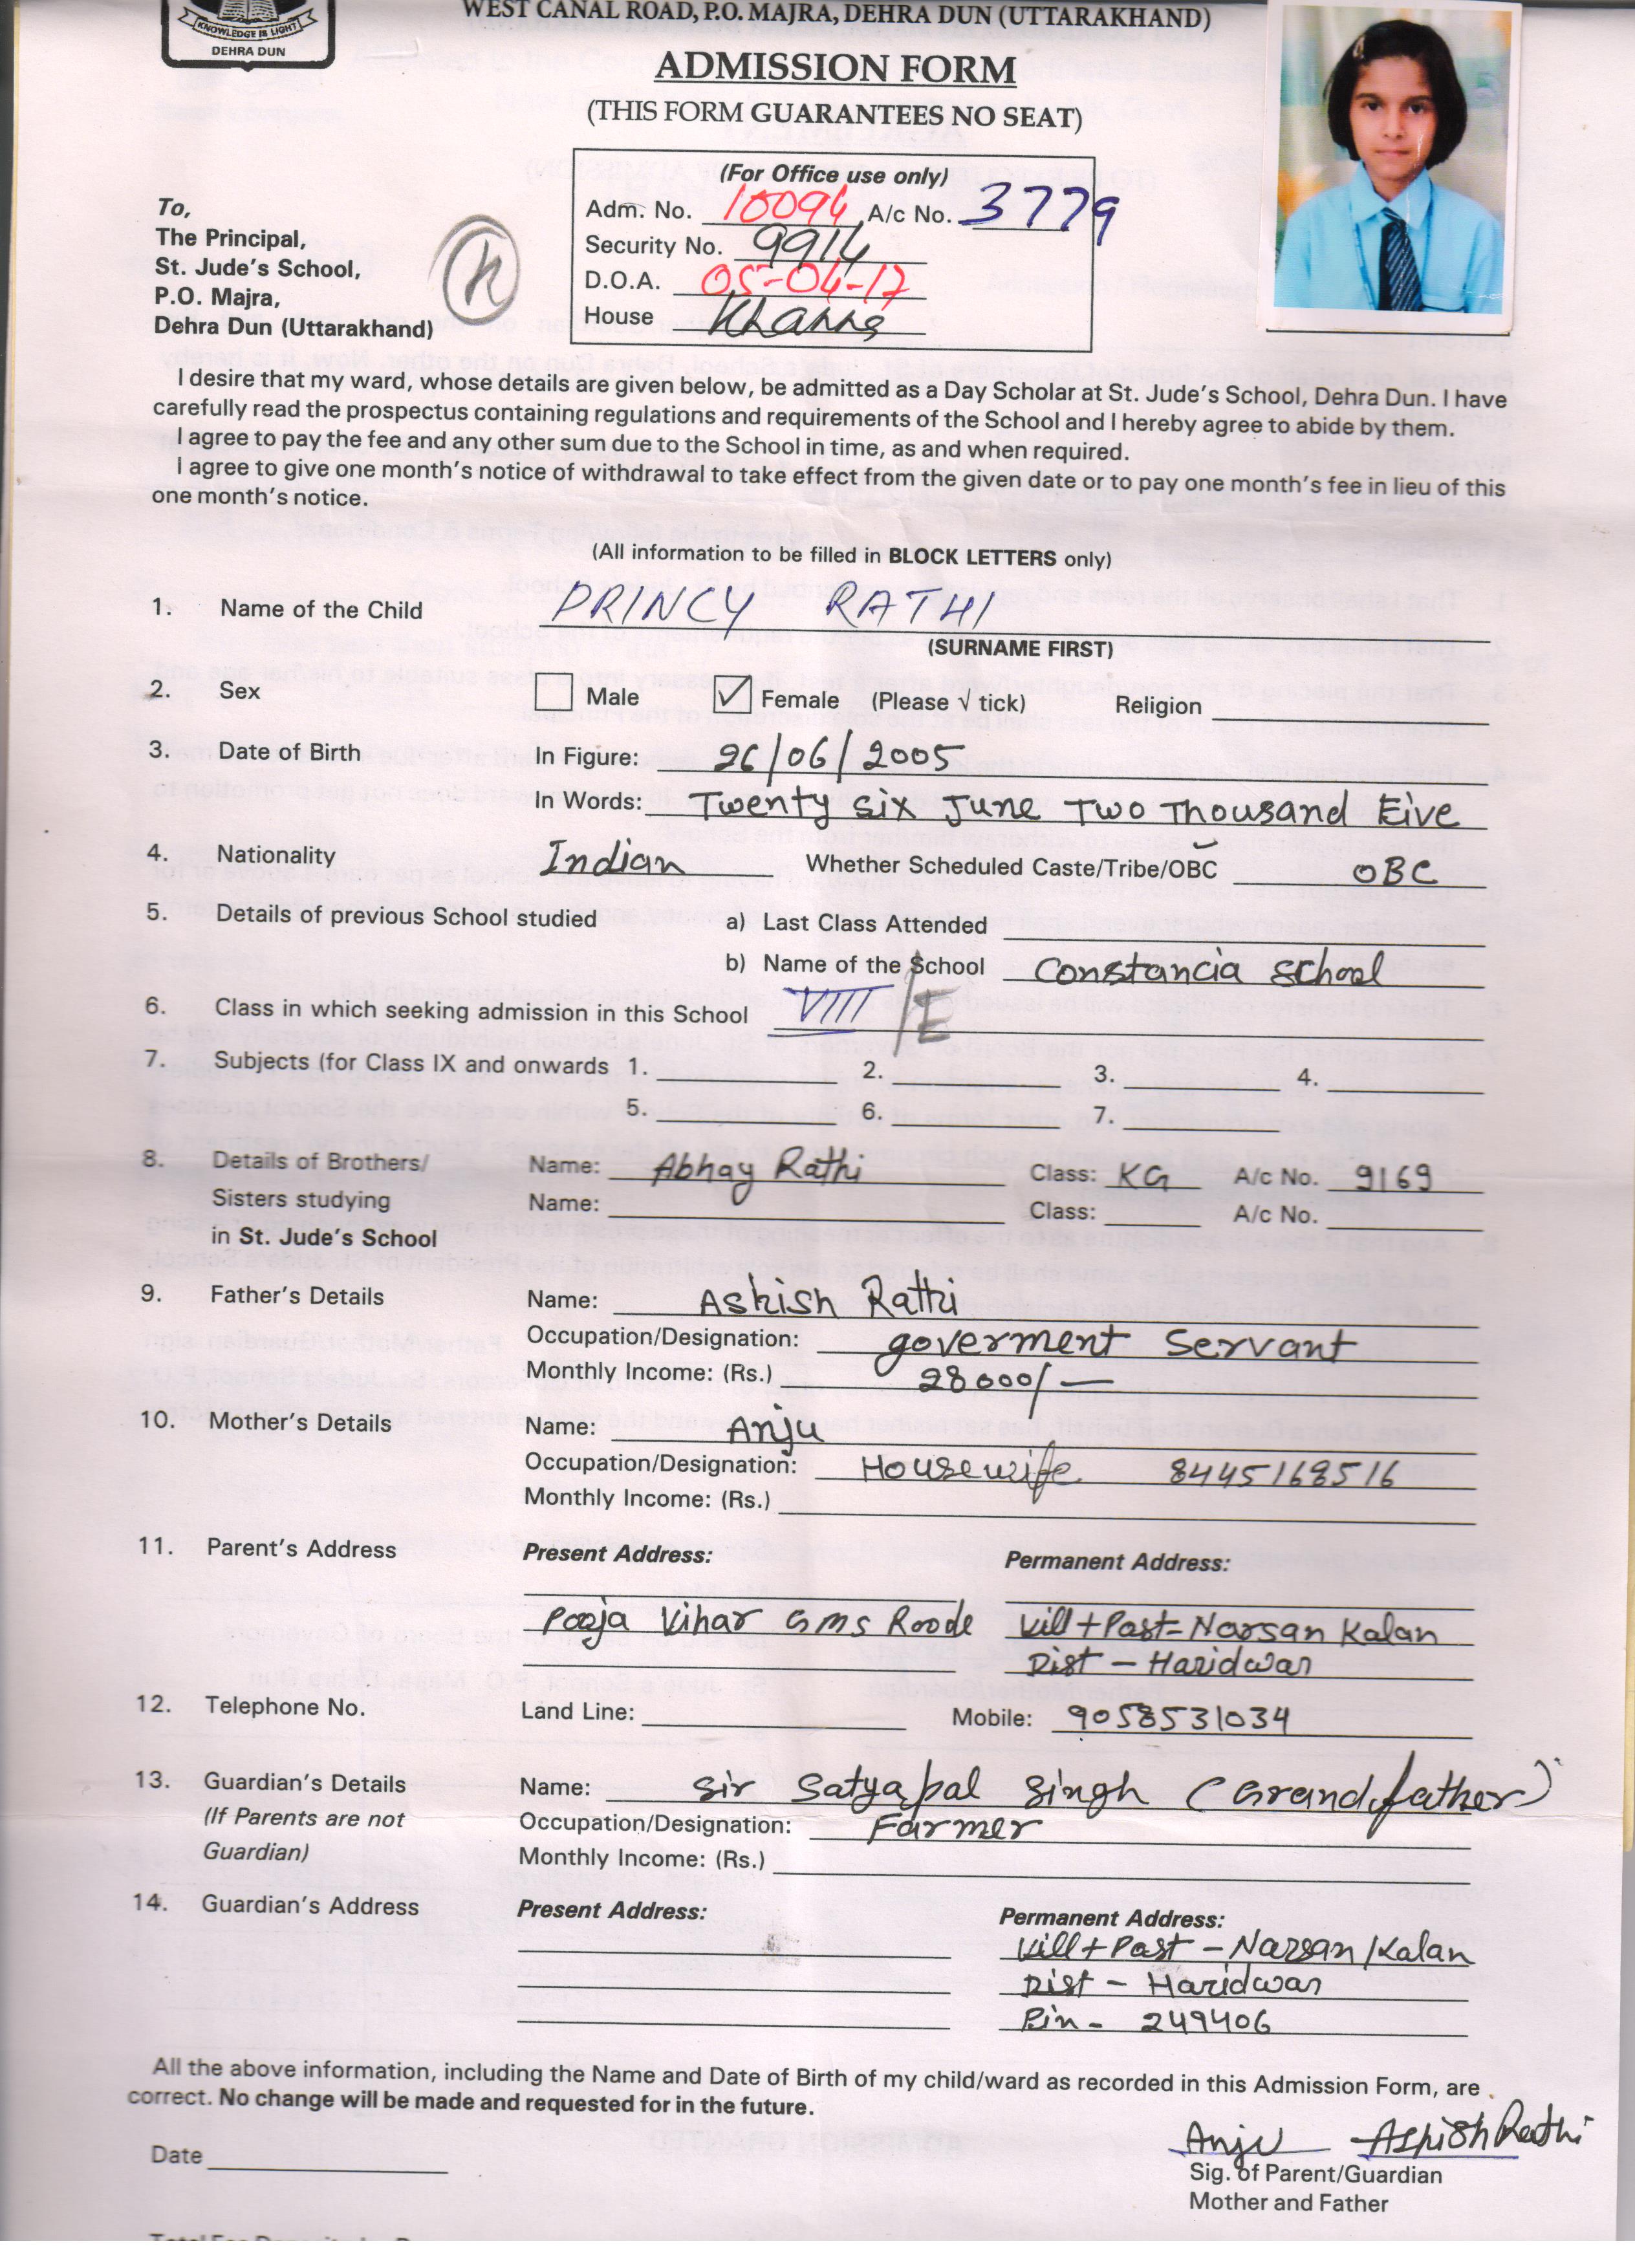 KNOWLEDGE IS LIGHT
DEHRA DUN
WEST CANAL ROAD, P.O. MAJRA, DEHRA DUN (UTTARAKHAND)
ADMISSION FORM
(THIS FORM GUARANTEES NO SEAT)
(For Office use only)
Adm. No. 10094 A/c No. 3779
Security No. 9914
D.O.A. 05-04-17
House Khanna
To,
The Principal,
St. Jude's School,
P.O. Majra,
Dehra Dun (Uttarakhand)
I desire that my ward, whose details are given below, be admitted as a Day Scholar at St. Jude's School, Dehra Dun. I have
carefully read the prospectus containing regulations and requirements of the School and I hereby agree to abide by them.
I agree to pay the fee and any other sum due to the School in time, as and when required.
I agree to give one month's notice of withdrawal to take effect from the given date or to pay one month's fee in lieu of this
one month's notice.
(All information to be filled in BLOCK LETTERS only)
1. Name of the Child PRINCY RATHI
(SURNAME FIRST)
2. Sex Male ✓ Female (Please √ tick) Religion
3. Date of Birth In Figure: 26/06/2005
In Words: Twenty six June Two Thousand Five
4. Nationality Indian Whether Scheduled Caste/Tribe/OBC OBC
5. Details of previous School studied a) Last Class Attended
b) Name of the School Constancia School
6. Class in which seeking admission in this School VIII /E
7. Subjects (for Class IX and onwards 1. 2. 3. 4.
5. 6. 7.
8. Details of Brothers/ Name: Abhay Rathi Class: KG A/c No. 9169
Sisters studying Name: Class: A/c No.
in St. Jude's School
9. Father's Details Name: Ashish Rathi
Occupation/Designation: goverment Servant
Monthly Income: (Rs.) 28000/-
10. Mother's Details Name: Anju
Occupation/Designation: Housewife 8445168516
Monthly Income: (Rs.)
11. Parent's Address Present Address: Permanent Address:
Pooja Vihar GMS Roode Vill+Post=Narsan Kalan
Dist - Haridwar
12. Telephone No. Land Line: Mobile: 9058531034
13. Guardian's Details Name: Sir Satyapal Singh (Grandfather)
(If Parents are not Occupation/Designation: Farmer
Guardian) Monthly Income: (Rs.)
14. Guardian's Address Present Address: Permanent Address:
Vill+Post - Narsan Kalan
Dist - Haridwar
Pin - 249406
All the above information, including the Name and Date of Birth of my child/ward as recorded in this Admission Form, are
correct. No change will be made and requested for in the future.
Anju Ashish Rathi
Date Sig. of Parent/Guardian
Mother and Father